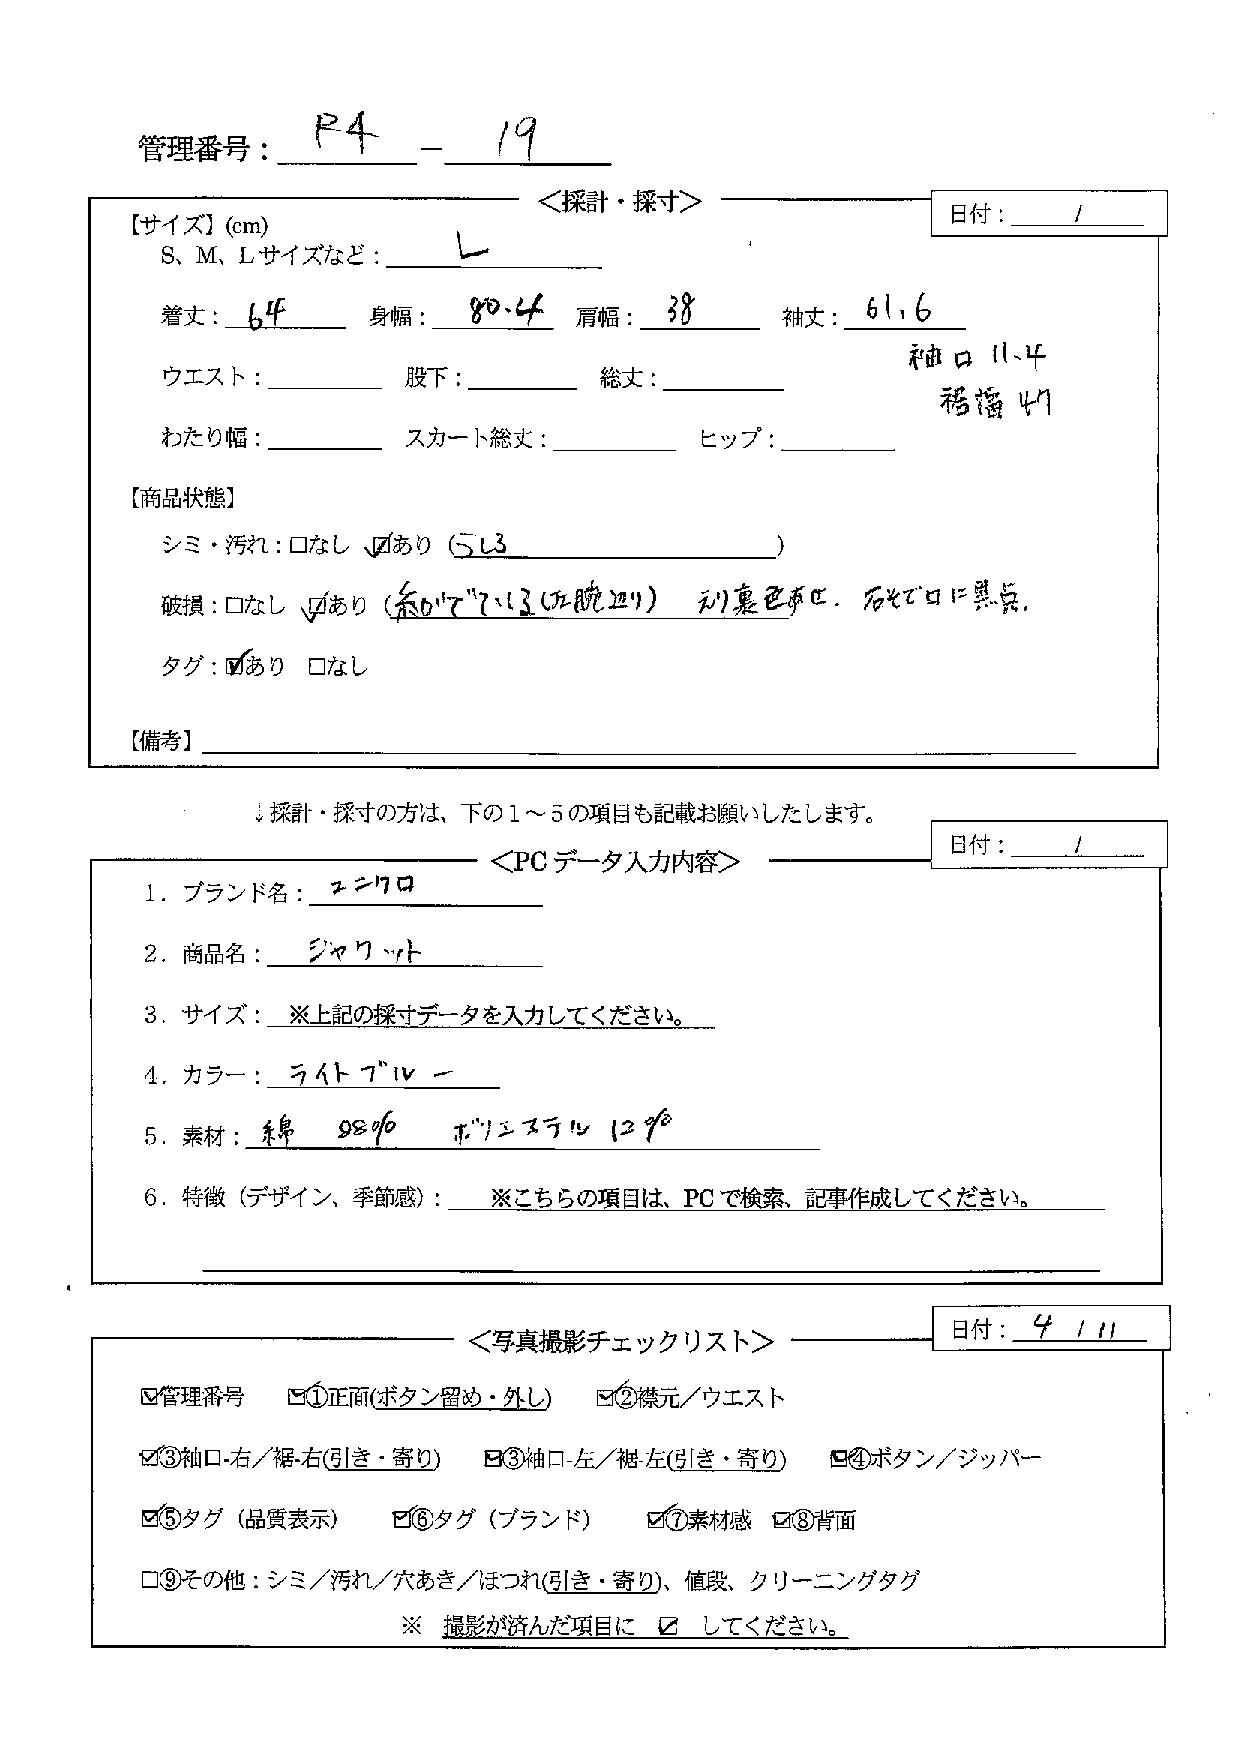 管理番号： P4 － 19
＜採計・採寸＞ 日付： /
【サイズ】(cm)
S、M、Lサイズなど： L
着丈： 64 身幅： 80.4 肩幅： 38 袖丈： 61.6
袖口 11.4
ウエスト： 股下： 総丈：
裾幅 47
わたり幅： スカート総丈： ヒップ：
【商品状態】
シミ・汚れ：□なし ☑あり（うしろ ）
破損：□なし ☑あり（糸がでている(左腕辺り) えり裏色あせ. 右そで口に黒点.
タグ：☑あり □なし
【備考】
↓採計・採寸の方は、下の１～５の項目も記載お願いしたします。
＜PCデータ入力内容＞ 日付： /
1．ブランド名： ユニクロ
2．商品名： ジャケット
3．サイズ： ※上記の採寸データを入力してください。
4．カラー： ライトブルー
5．素材： 綿 98% ポリエステル 12%
6．特徴（デザイン、季節感）： ※こちらの項目は、PCで検索、記事作成してください。
＜写真撮影チェックリスト＞ 日付： 4 / 11
☑管理番号 ☑①正面(ボタン留め・外し) ☑②襟元／ウエスト
☑③袖口-右／裾-右(引き・寄り) ☑③袖口-左／裾-左(引き・寄り) ☑④ボタン／ジッパー
☑⑤タグ（品質表示） ☑⑥タグ（ブランド） ☑⑦素材感 ☑⑧背面
□⑨その他：シミ／汚れ／穴あき／ほつれ(引き・寄り)、値段、クリーニングタグ
※ 撮影が済んだ項目に ☑ してください。